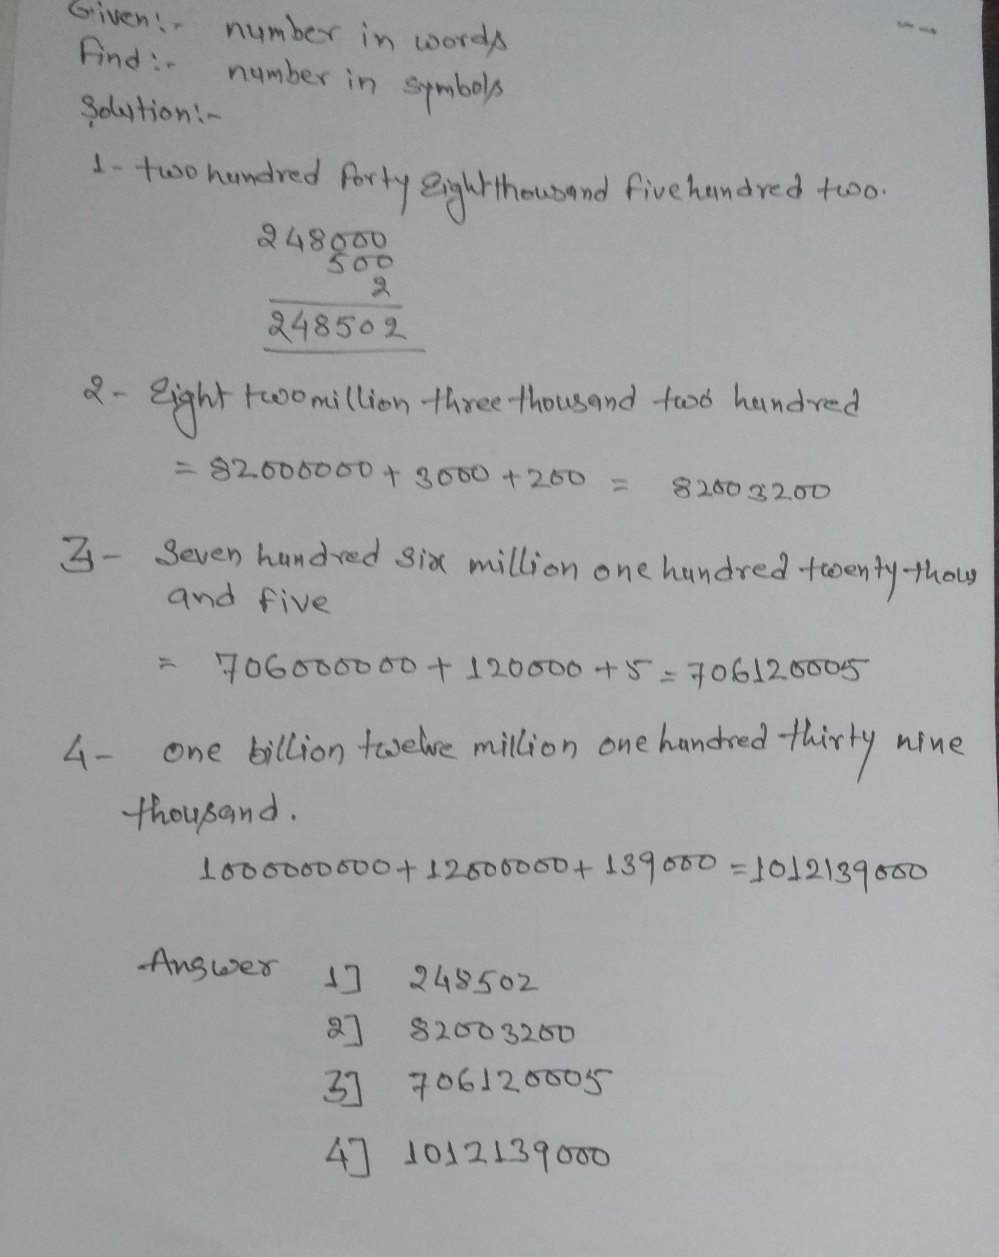 Given:- number in words
Find:- number in symbols
Solution:-
1- two hundred forty Eight thousand five hundred two.
248000
500
2
248502
2- Eight two million three thousand two hundred
= 82000000 + 3000 + 200 = 82003200
3- Seven hundred six million one hundred twenty thous
and five
= 706000000 + 120000 + 5 = 706120005
4- one billion twelve million one hundred thirty nine
thousand.
1000000000 + 12000000 + 139000 = 1012139000
Answer 1] 248502
2] 82003200
3] 706120005
4] 1012139000